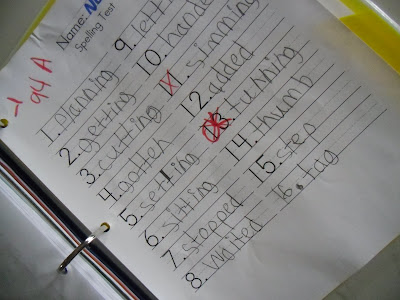 Name:
Spelling Test
-1
94 A
1. planning
2. getting
3. cutting
4. gotten
5. setting
6. sitting
7. stopped
8. waited
9. lett
10. hande
11. simming
12. added
running
14. thumb
15. step
16. tag